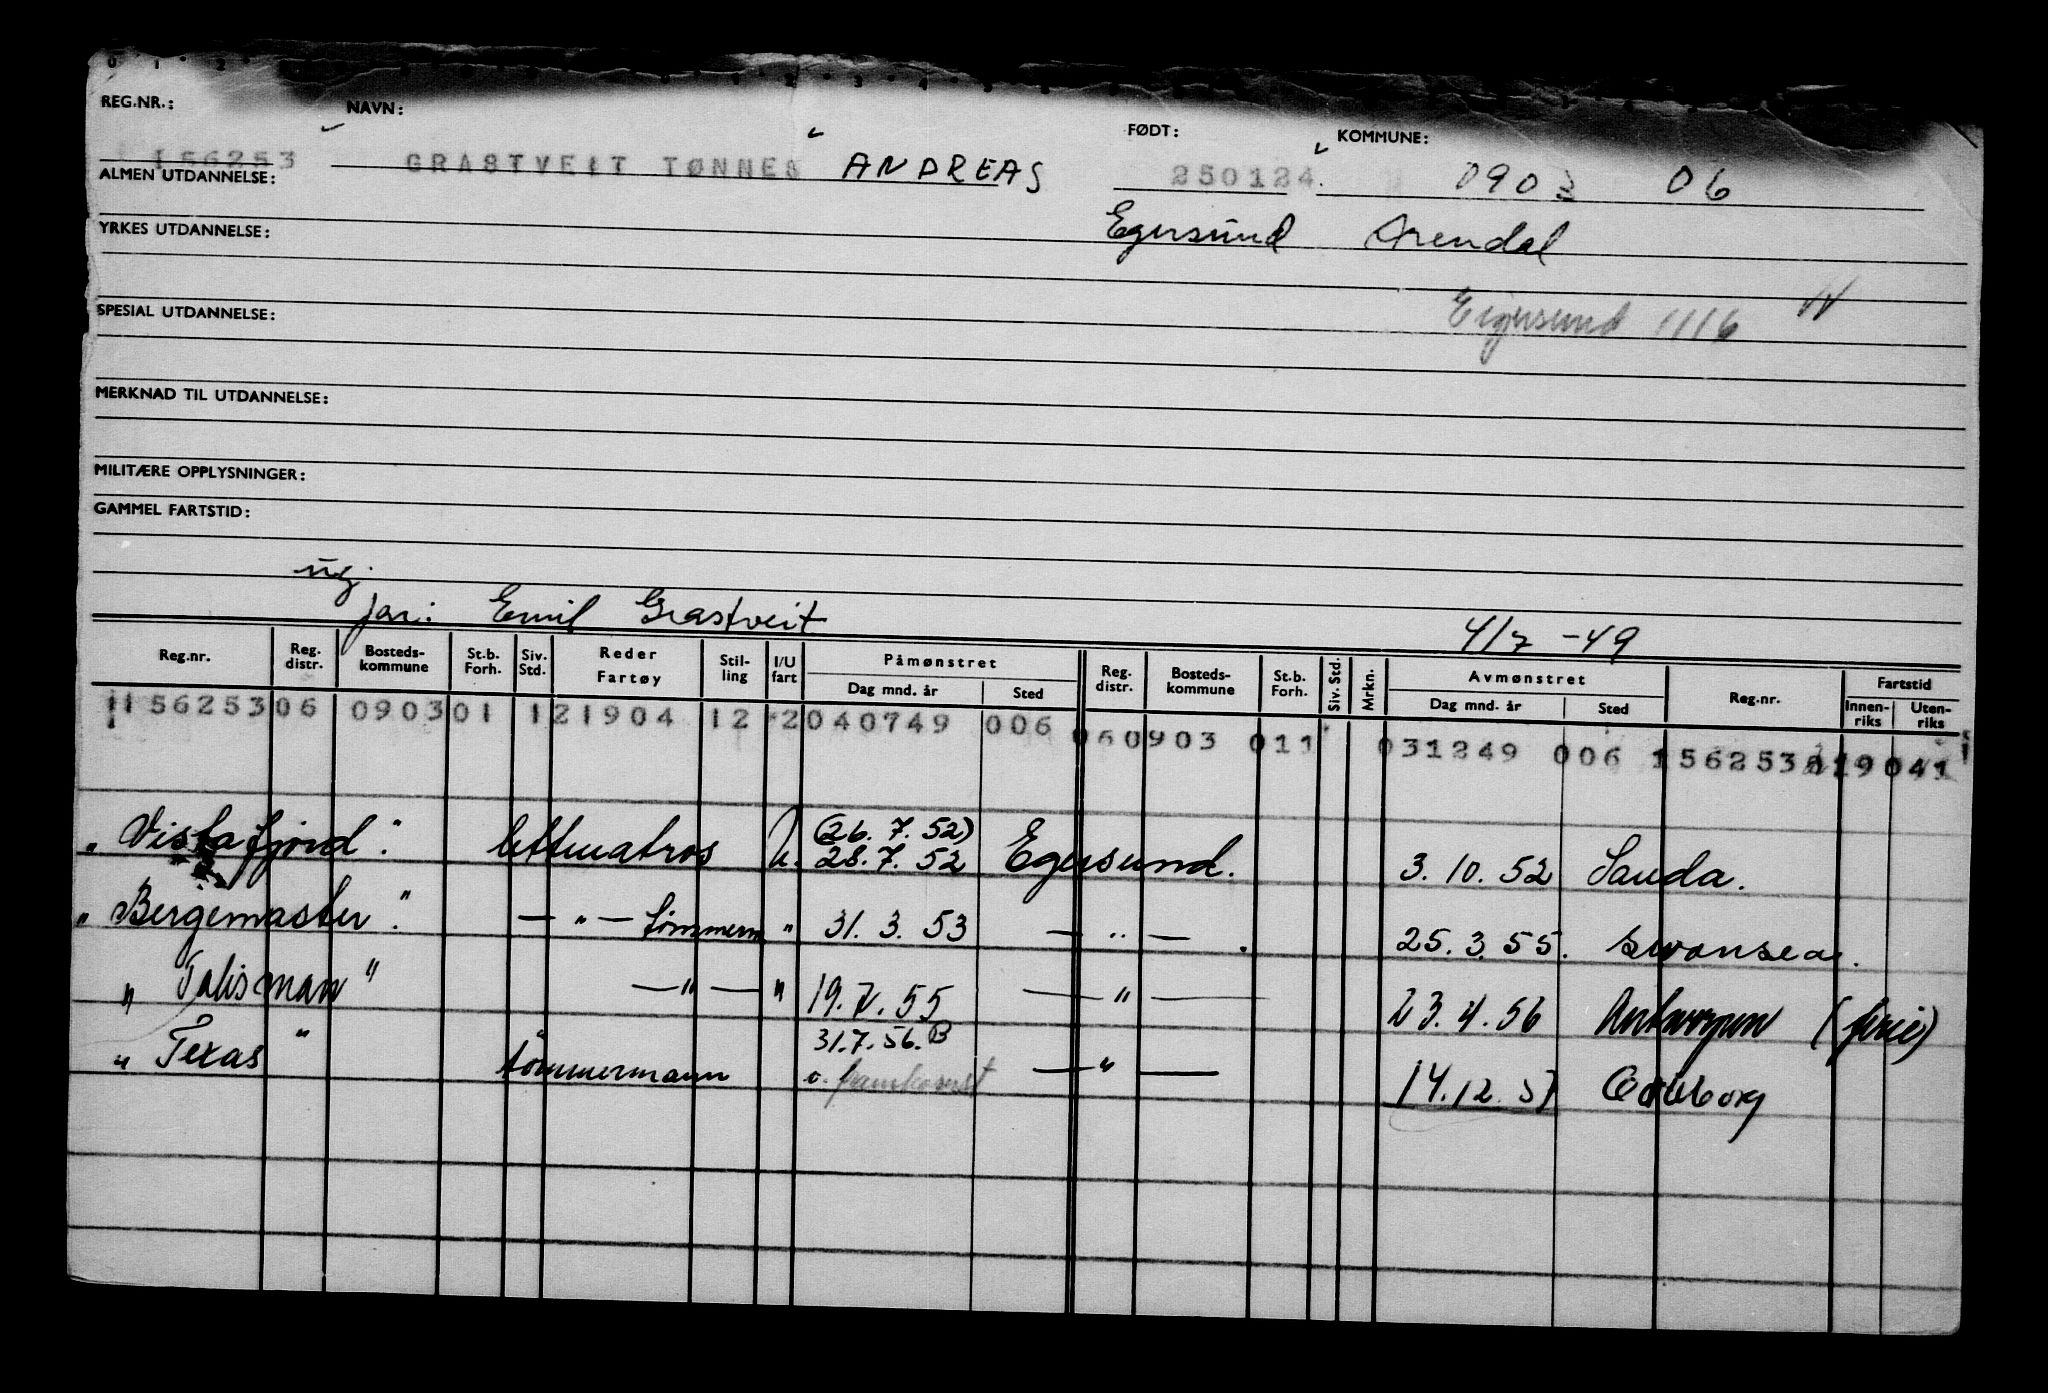 REG.NR.: NAVN: FØDT: KOMMUNE:
156253 GRASTVEIT TØNNES ANDREAS 250124. 0903 06
ALMEN UTDANNELSE:
Egersund Arendal
YRKES UTDANNELSE:
Eigersund 1116
SPESIAL UTDANNELSE:
MERKNAD TIL UTDANNELSE:
MILITÆRE OPPLYSNINGER:
GAMMEL FARTSTID:
ug.
far: Emil Grastveit 4/7 -49
Reg.nr. Reg. distr. Bosteds- kommune St.b. Forh. Siv. Std. Reder Fartøy Stil- ling I/U fart Påmønstret Dag mnd. år Sted Reg. distr. Bosteds- kommune St.b. Forh. Siv. Std. Mrkn. Avmønstret Dag mnd. år Sted Reg.nr. Fartstid Innen- riks Uten- riks
156253 06 0903 01 1 21904 12 2 040749 006 06 0903 011 031249 006 156253
(26. 7. 52)
"Vistafjord". lettmatros U. 28. 7. 52 Egersund. 3. 10. 52 Sauda.
"Bergemaster". — " — tømmerm " 31. 3. 53 — " — . 25. 3. 55. Swansea.
"Talisman" — " — " 19. 7. 55 — " — 23. 4. 56 Antwerpen (ferie)
31.7.56. B
"Texas" tømmermann o. framkomst — " — 14. 12. 57 Göteborg